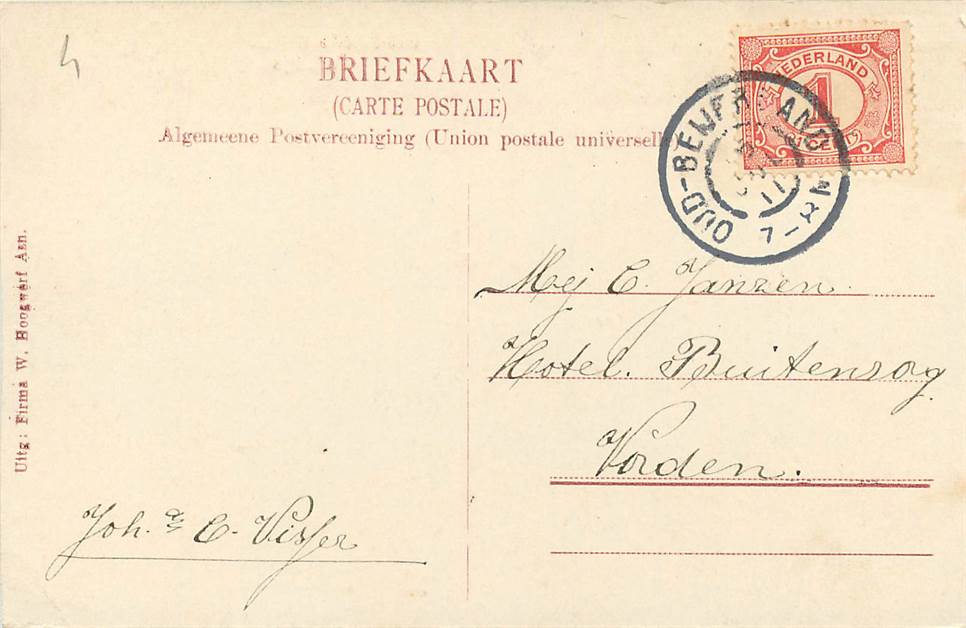 4
BRIEFKAART
(CARTE POSTALE)
Algemeene Postvereeniging (Union postale universelle
NEDERLAND
1
CENT
OUD-BEIJERLAND
7-8 N
Mej C. Janzen.
Hotel. Buitenzorg
Vorden.
Joh. & C. Visser
Uitg: Firma W. Hoogwerf Azn.